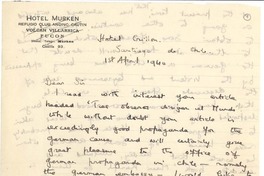 HOTEL MURKEN
REFUGIO CLUB ANDINO CAUTIN
VOLCAN VILLARRICA
PUCON
Hotel Crillon
Santiago de Chile
1st April 1940
Dear Sir
I was with interest your article
headed "Tres obreros dirigen al Mundo"
While without doubt your article is
exceedingly good propaganda for the
German cause and will certainly give
great pleasure to the offices of
German propaganda in Chile namely
the German embassy I would like to